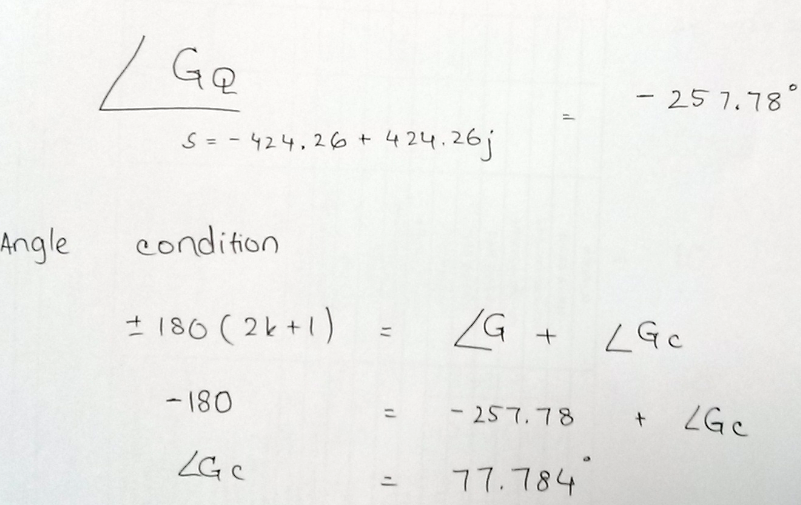 ∠GQ = -257.78°
s = -424.26 + 424.26j
Angle condition
± 180 (2k+1) = ∠G + ∠Gc
-180 = -257.78 + ∠Gc
∠Gc = 77.784°